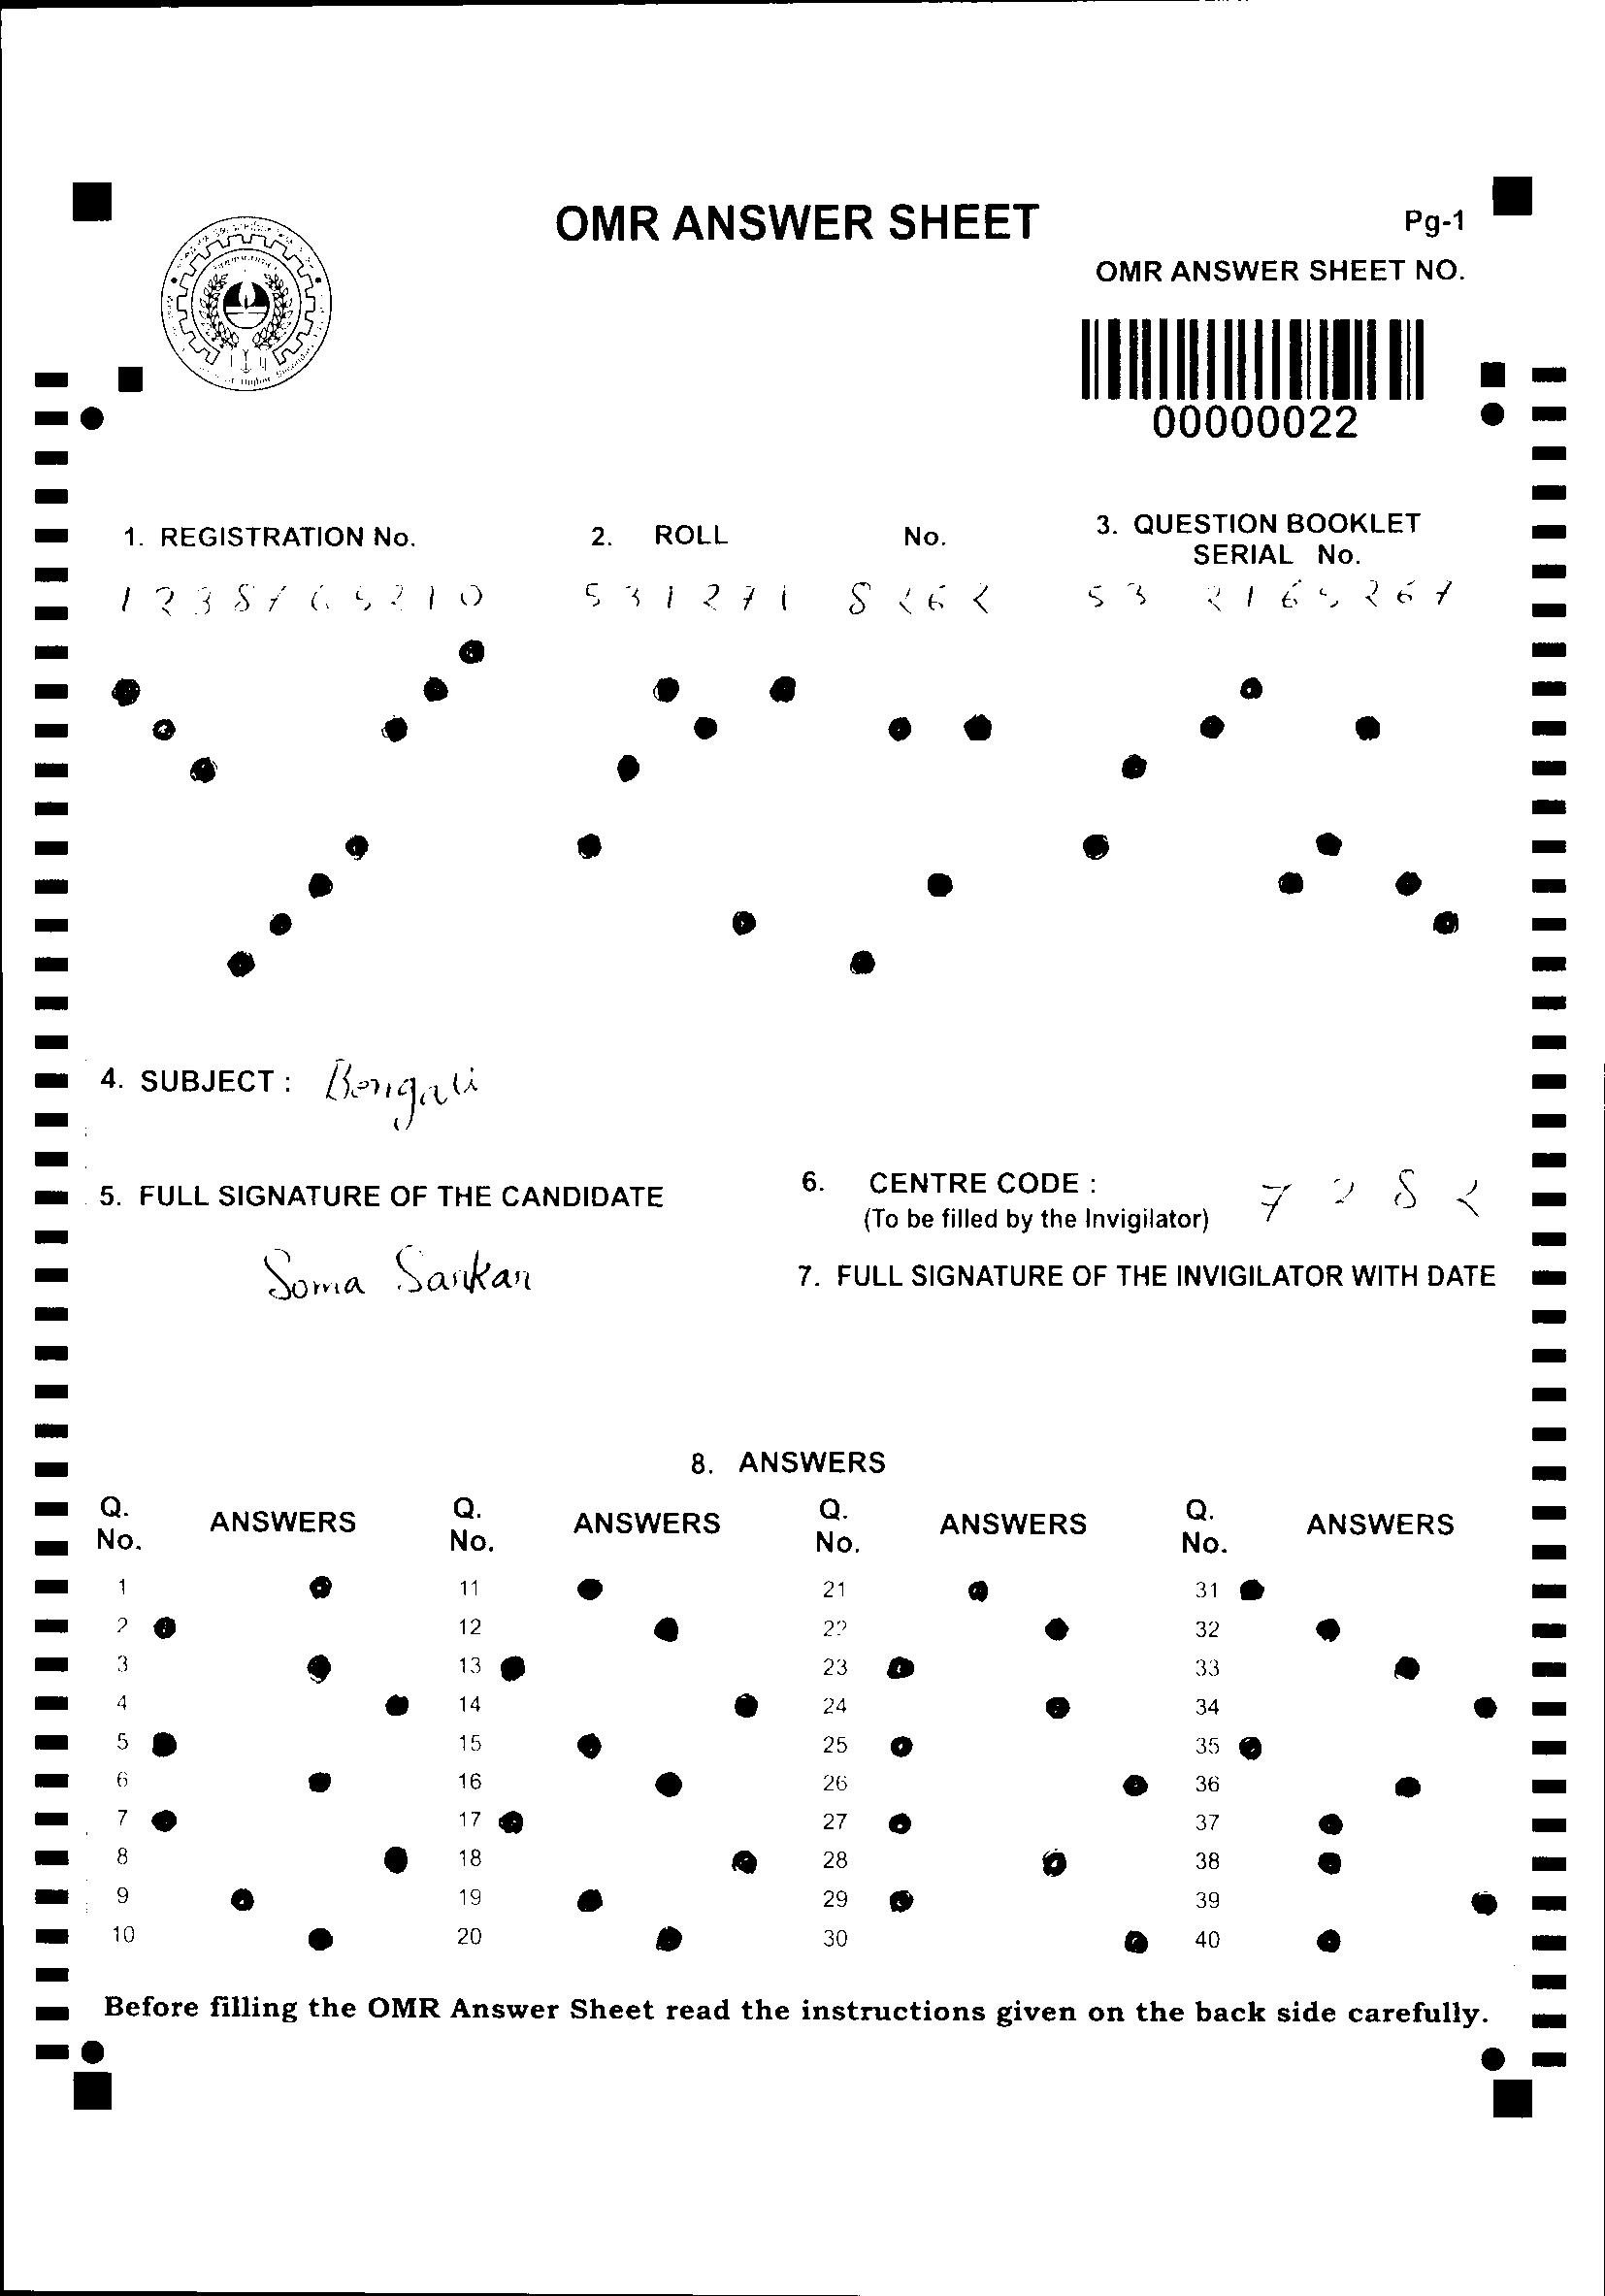 OMR ANSWER SHEET
Pg-1
OMR ANSWER SHEET NO.
00000022
1. REGISTRATION No.
2. ROLL No.
3. QUESTION BOOKLET
SERIAL No.
1 2 3 8 7 6 5 2 1 0
5 3 1 2 7 1 8 2 6 2
5 3 2 1 6 5 2 6 7
4. SUBJECT : Bengali
5. FULL SIGNATURE OF THE CANDIDATE
Soma Sarkar
6. CENTRE CODE : 7 2 8 2
(To be filled by the Invigilator)
7. FULL SIGNATURE OF THE INVIGILATOR WITH DATE
8. ANSWERS
Q. No. ANSWERS Q. No. ANSWERS Q. No. ANSWERS Q. No. ANSWERS
1 11 21 31
2 12 22 32
3 13 23 33
4 14 24 34
5 15 25 35
6 16 26 36
7 17 27 37
8 18 28 38
9 19 29 39
10 20 30 40
Before filling the OMR Answer Sheet read the instructions given on the back side carefully.